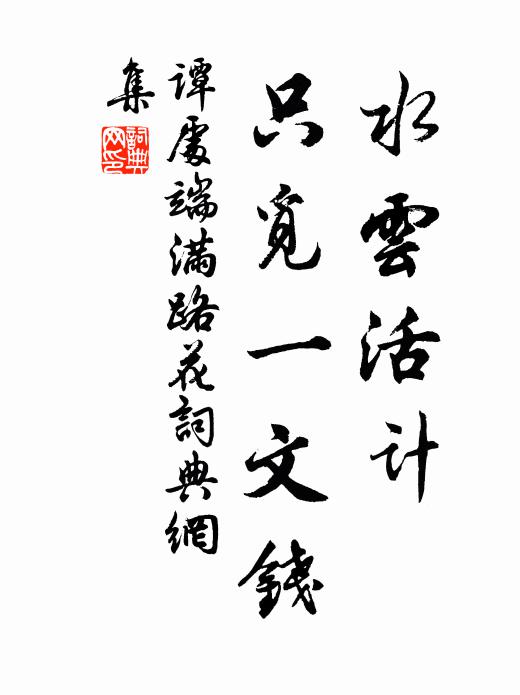 水雲活计
只覓一文錢
譚處端滿路花詞典網
集
詞典網印